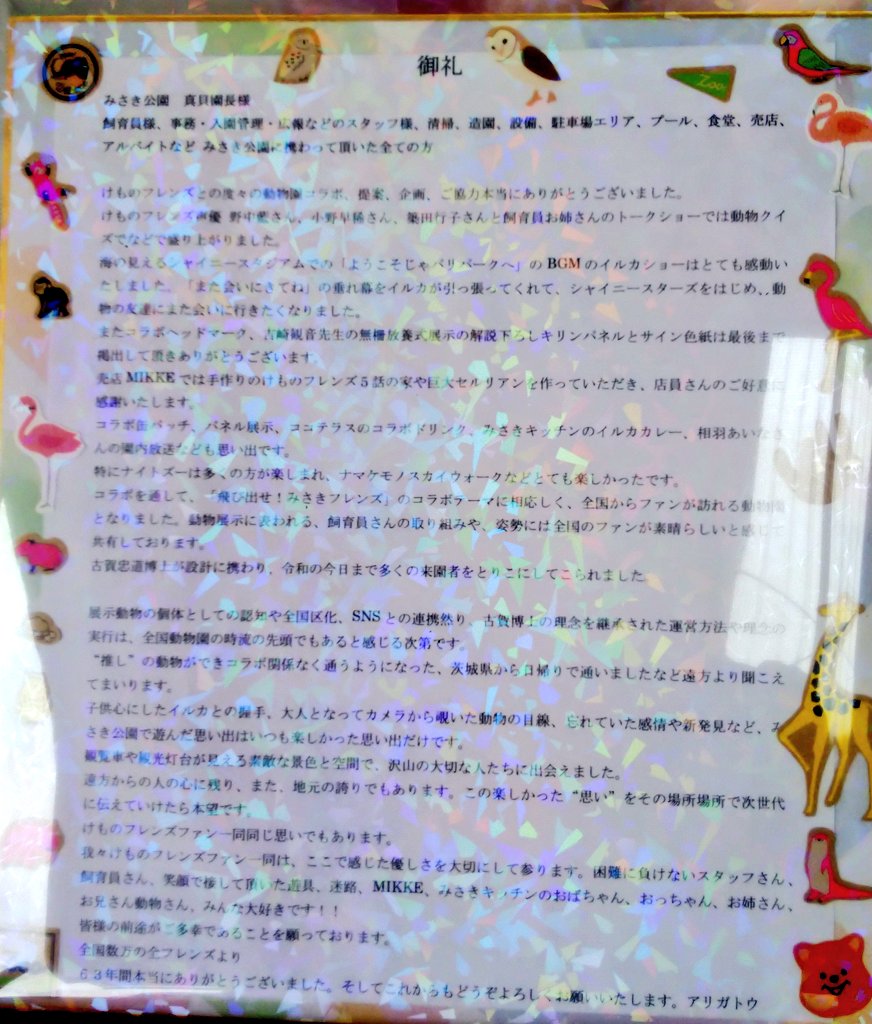 御礼
Zoo
みさき公園 真貝園長様
飼育員様、事務・入園管理・広報などのスタッフ様、清掃、造園、設備、駐車場エリア、プール、食堂、売店、
アルバイトなど みさき公園に携わって頂いた全ての方
けものフレンズとの度々の動物園コラボ、提案、企画、ご協力本当にありがとうございました。
けものフレンズ声優 野中藍さん、小野早稀さん、築田行子さんと飼育員お姉さんのトークショーでは動物クイ
ズでなどで盛り上がりました。
海の見えるシャイニースタジアムでの「ようこそじゃパリパークへ」のBGMのイルカショーはとても感動い
たしました。「また会いにきてね」の垂れ幕をイルカが引っ張ってくれて、シャイニースターズをはじめ、動
物の友達にまた会いに行きたくなりました。
またコラボヘッドマーク、吉崎観音先生の無柵放養式展示の解説下ろしキリンパネルとサイン色紙は最後まで
掲出して頂きありがとうございます。
売店MIKKEでは手作りのけものフレンズ5話の家や巨大セルリアンを作っていただき、店員さんのご好意に
感謝いたします。
コラボ缶バッチ、パネル展示、ココテラスのコラボドリンク、みさきキッチンのイルカカレー、相羽あいなさ
んの園内放送なども思い出です。
特にナイトズーは多くの方が楽しまれ、ナマケモノスカイウォークなどとても楽しかったです。
コラボを通して、「飛び出せ!みさきフレンズ」のコラボテーマに相応しく、全国からファンが訪れる動物園
となりました。動物展示に表われる、飼育員さんの取り組みや、姿勢には全国のファンが素晴らしいと感じて
共有しております。
古賀忠道博士が設計に携わり、令和の今日まで多くの来園者をとりこにしてこられました。
展示動物の個体としての認知や全国区化、SNSとの連携然り、古賀博士の理念を継承された運営方法や理念の
実行は、全国動物園の時流の先頭でもあると感じる次第です。
“推し”の動物ができコラボ関係なく通うようになった、茨城県から日帰りで通いましたなど遠方より聞こえ
てまいります。
子供心にしたイルカとの握手、大人となってカメラから覗いた動物の目線、忘れていた感情や新発見など、み
さき公園で遊んだ思い出はいつも楽しかった思い出だけです。
観覧車や観光灯台が見える素敵な景色と空間で、沢山の大切な人たちに出会えました。
遠方からの人の心に残り、また、地元の誇りでもあります。この楽しかった“思い”をその場所場所で次世代
に伝えていけたら本望です。
けものフレンズファン一同同じ思いでもあります。
我々けものフレンズファン一同は、ここで感じた優しさを大切にして参ります。困難に負けないスタッフさん、
飼育員さん、笑顔で接して頂いた遊具、迷路、MIKKE、みさきキッチンのおばちゃん、おっちゃん、お姉さん、
お兄さん動物さん、みんな大好きです!!
皆様の前途がご多幸であることを願っております。
全国数万の全フレンズより
63年間本当にありがとうございました。そしてこれからもどうぞよろしくお願いいたします。アリガトウ